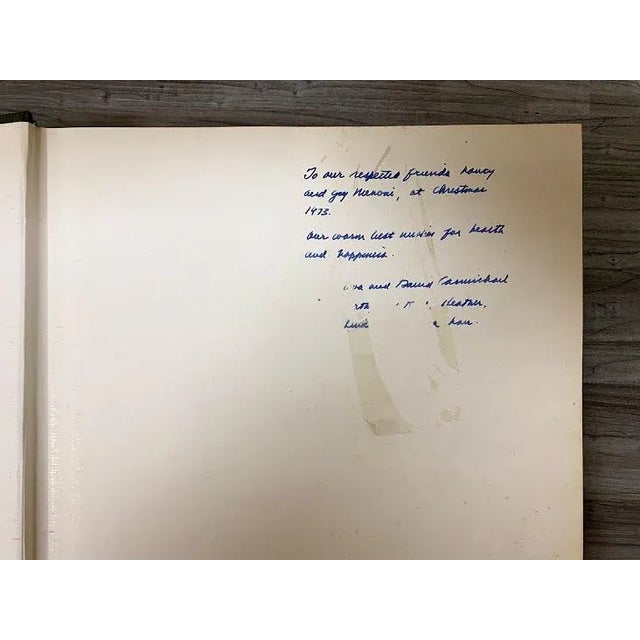 To our respected friends Nancy
and Guy, at Christmas
1973.
Our warm best wishes for health
and happiness.
and David Carmichael
Heather,